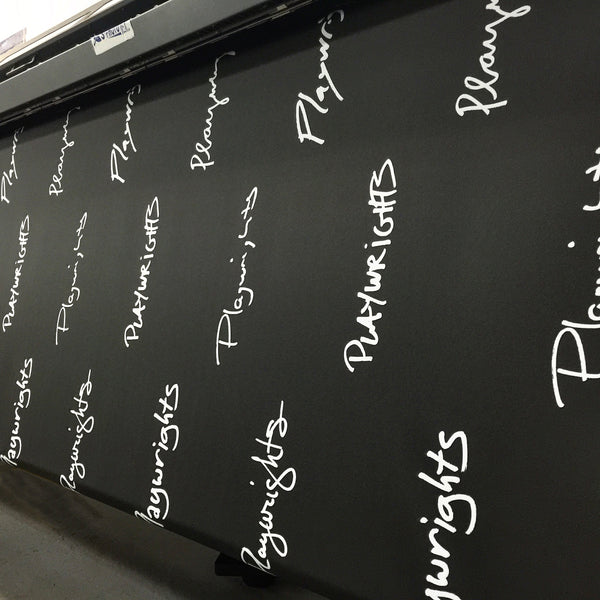 aywrights PLAYWRIGHTS Playwr
laywrights Playwrights Playwr
aywrights PLAYWRIGHTS Playwr
laywrights Playwrights Playwr
ywrights PLAYWRIGHTS Playwr
Playwrights Playw